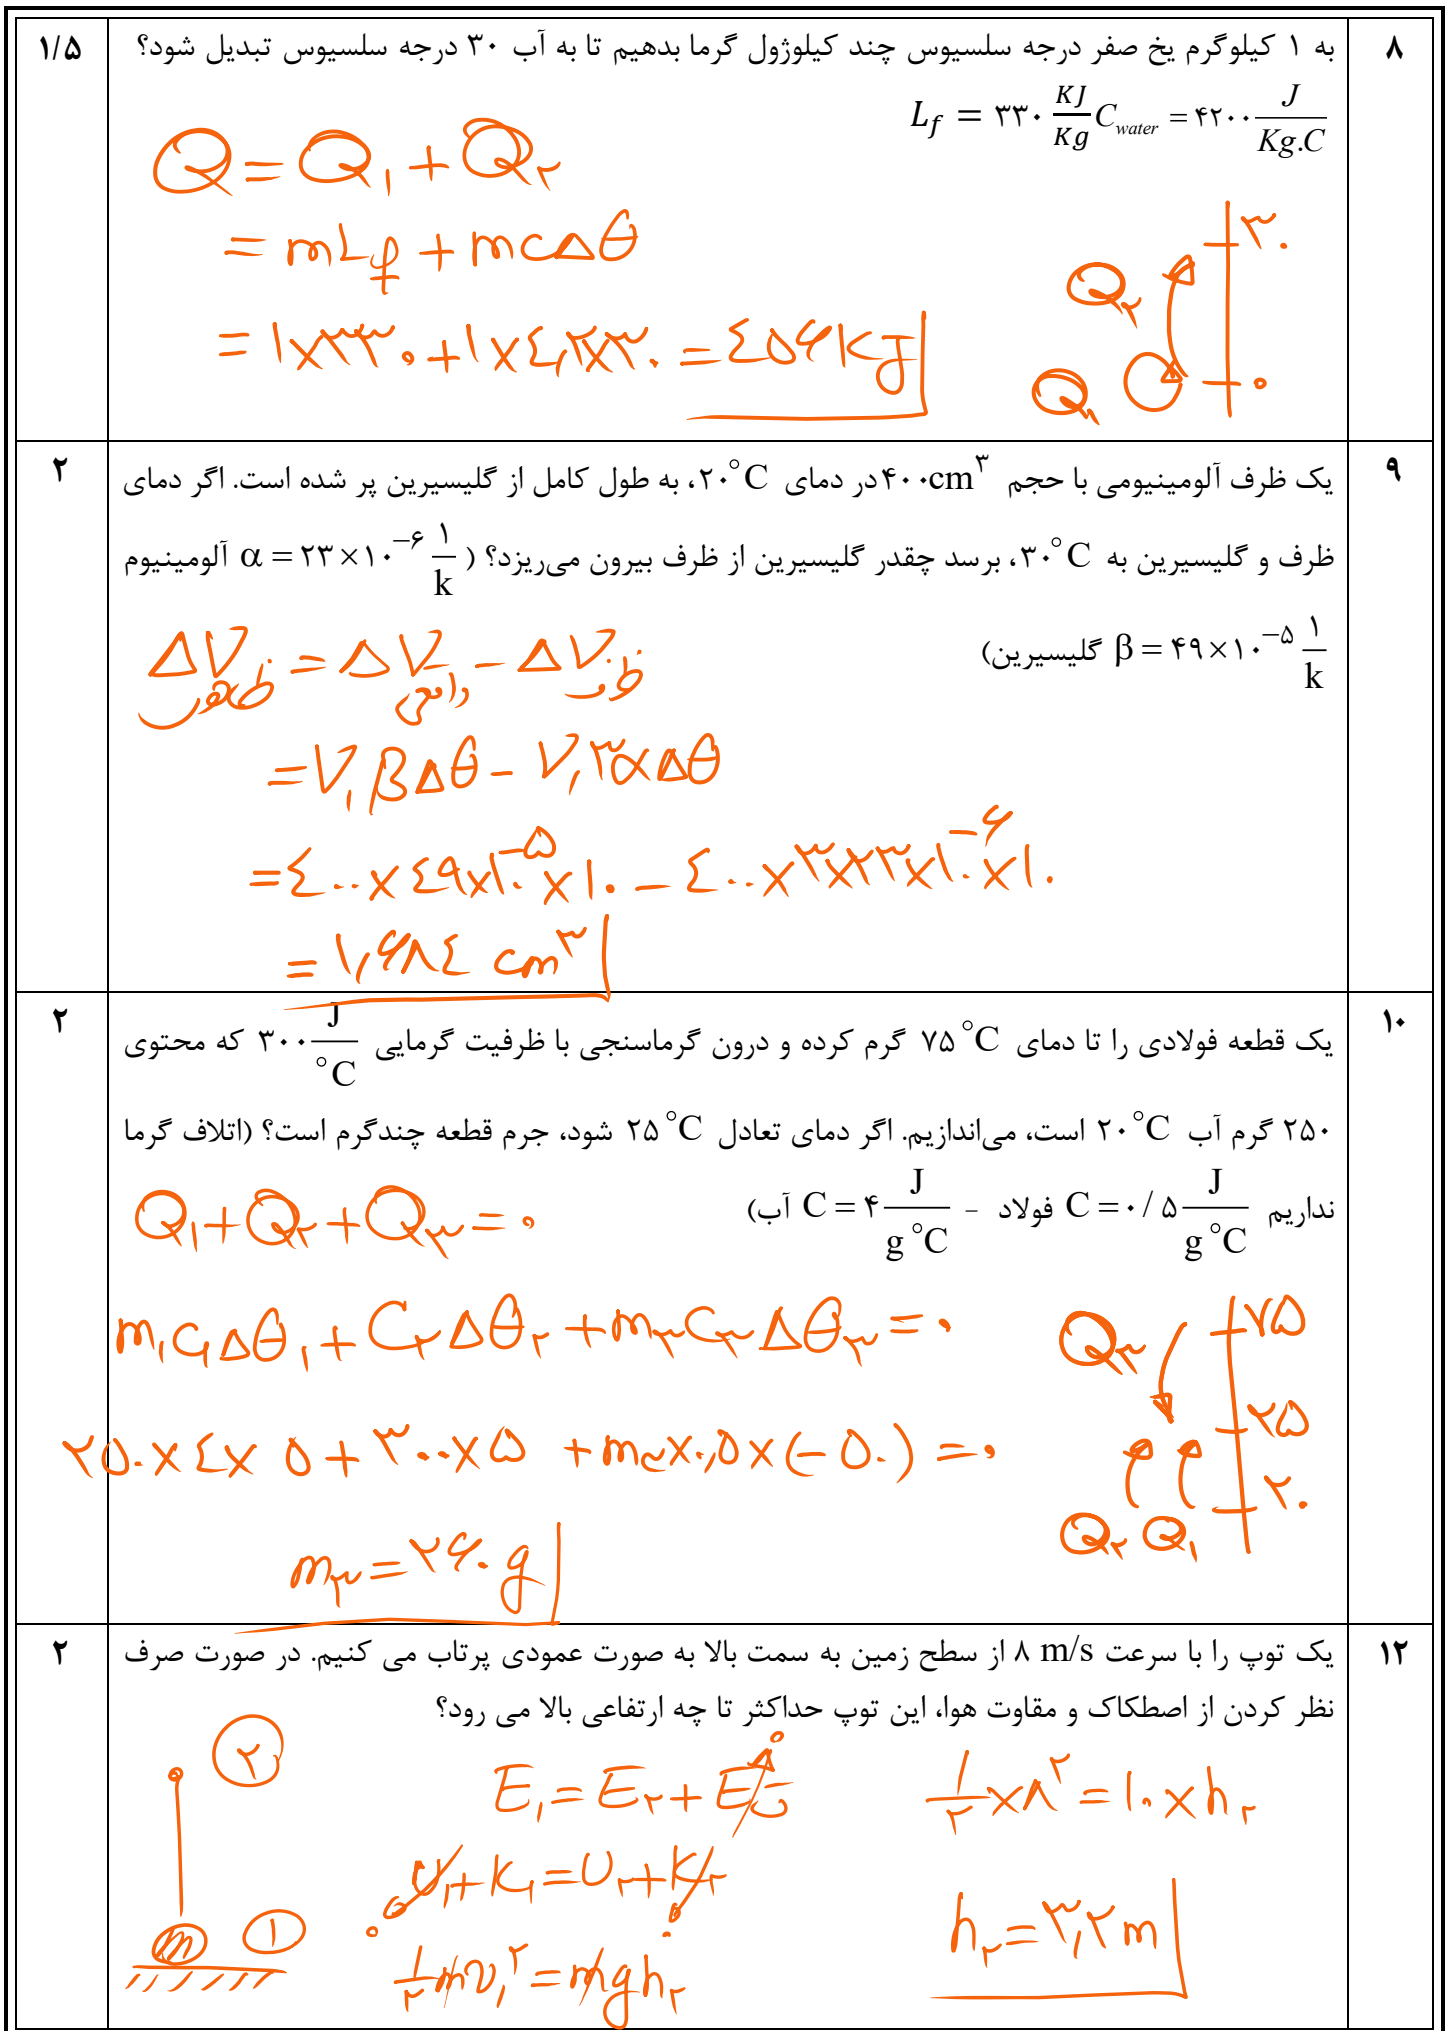 ۸
به ۱ کیلوگرم یخ صفر درجه سلسیوس چند کیلوژول گرما بدهیم تا به آب ۳۰ درجه سلسیوس تبدیل شود؟
۱/۵
L_f = ۳۳۰ KJ/Kg C_water = ۴۲۰۰ J/Kg.C
Q = Q₁ + Q₂
= mL_f + mcΔθ
= ۱×۳۳۰ + ۱×٤,۲×۳۰ = ٤۵۶ KJ
۳۰
Q₂
Q₁
۰
۹
یک ظرف آلومینیومی با حجم ۴۰۰cm³ در دمای ۲۰°C، به طول کامل از گلیسیرین پر شده است. اگر دمای
۲
ظرف و گلیسیرین به ۳۰°C، برسد چقدر گلیسیرین از ظرف بیرون می‌ریزد؟ ( α = ۲۳×۱۰⁻⁶ ۱/k آلومینیوم
β = ۴۹×۱۰⁻⁵ ۱/k گلیسیرین)
ΔV ظاهری = ΔV واقعی − ΔV ظرف
= V₁βΔθ − V₁۳αΔθ
= ٤۰۰×٤۹×۱۰⁻⁵×۱۰ − ٤۰۰×۳×۲۳×۱۰⁻⁶×۱۰
= ۱,۶۸٤ cm³
۱۰
یک قطعه فولادی را تا دمای ۷۵°C گرم کرده و درون گرماسنجی با ظرفیت گرمایی ۳۰۰ J/°C که محتوی
۲
۲۵۰ گرم آب ۲۰°C است، می‌اندازیم. اگر دمای تعادل ۲۵°C شود، جرم قطعه چندگرم است؟ (اتلاف گرما
نداریم C = ۰/۵ J/g°C فولاد - C = ۴ J/g°C آب)
Q₁ + Q₂ + Q₃ = ۰
m₁c₁Δθ₁ + C₂Δθ₂ + m₃c₃Δθ₃ = ۰
۲۵۰×٤×۵ + ۳۰۰×۵ + m₃×۰,۵×(−۵۰) = ۰
m₃ = ۲۶۰ g
۷۵
Q₃
۲۵
۲۰
Q₂ Q₁
۱۲
یک توپ را با سرعت ۸ m/s از سطح زمین به سمت بالا به صورت عمودی پرتاب می کنیم. در صورت صرف
۲
نظر کردن از اصطکاک و مقاوت هوا، این توپ حداکثر تا چه ارتفاعی بالا می رود؟
۲
m
۱
E₁ = E₂ + E ۰
U₁ + K₁ = U₂ + K₂
۰ ۰
۱/۲ mv₁² = mgh₂
۱/۲ × ۸² = ۱۰ × h₂
h₂ = ۳,۲ m